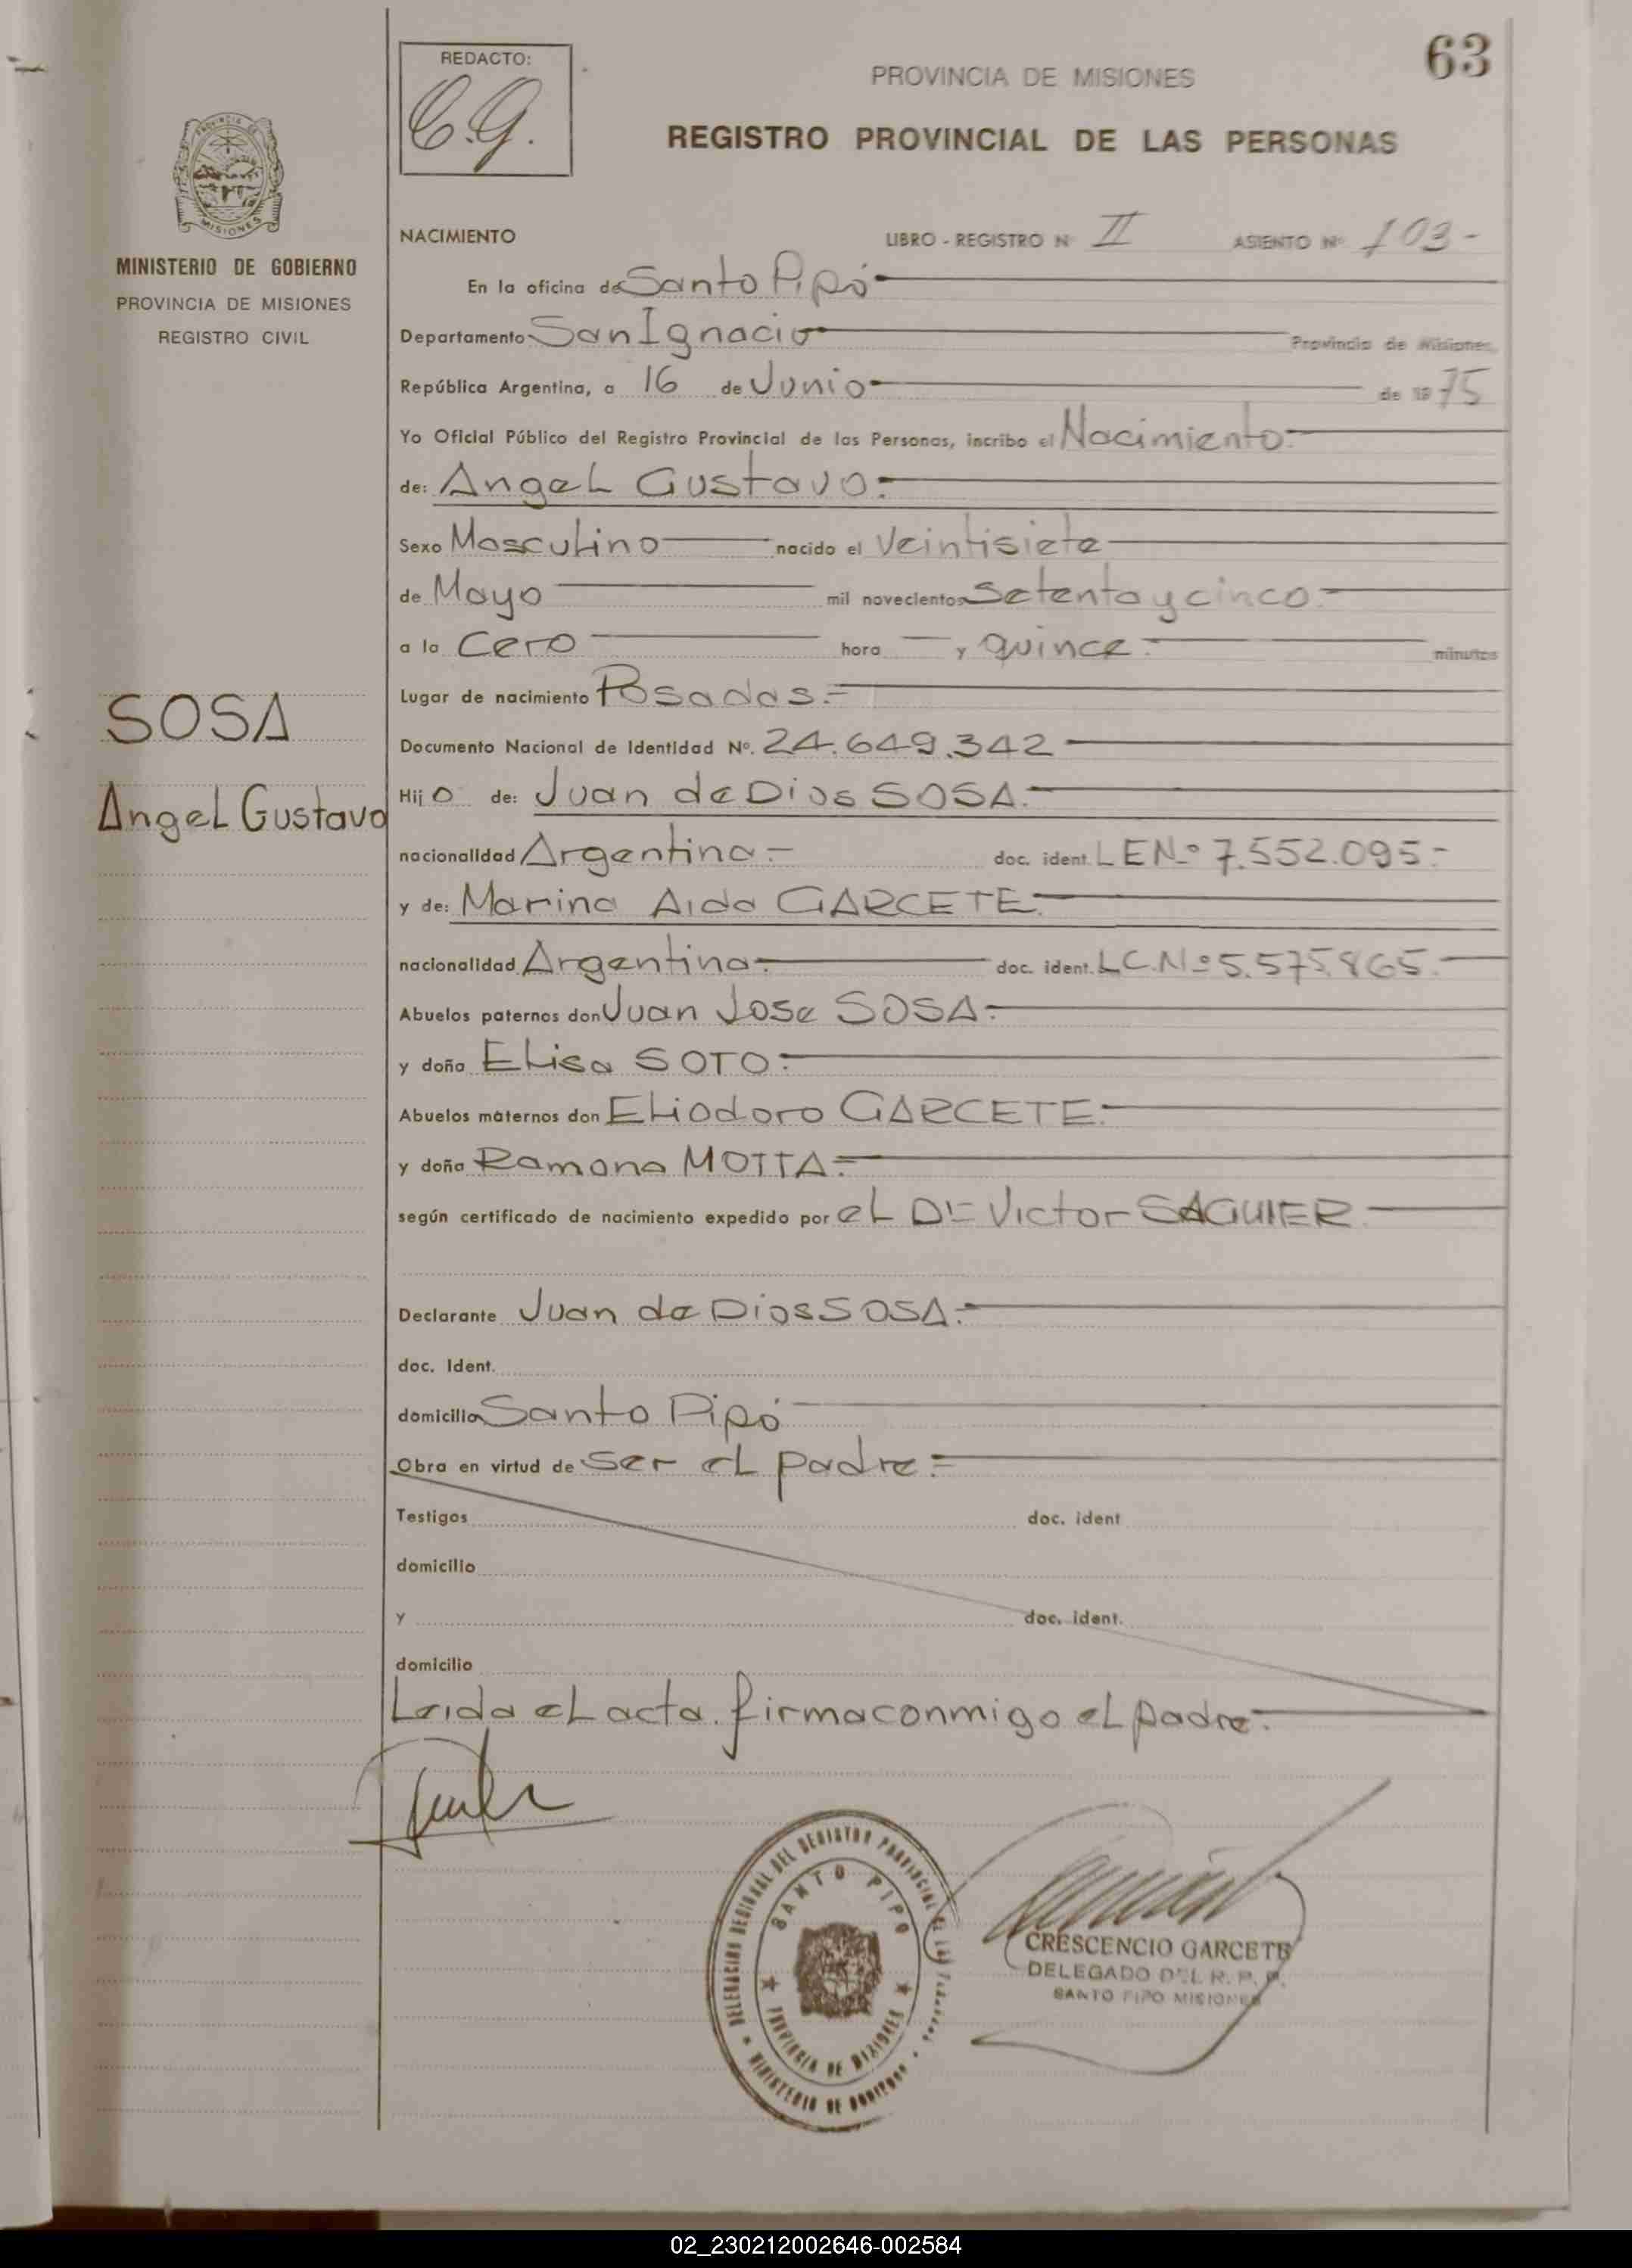 63
REDACTO:
C.G.
PROVINCIA DE MISIONES
REGISTRO PROVINCIAL DE LAS PERSONAS
MISIONES
MINISTERIO DE GOBIERNO
PROVINCIA DE MISIONES
REGISTRO CIVIL
NACIMIENTO LIBRO - REGISTRO Nº II ASIENTO Nº 103-
En la oficina de Santo Pipó
Departamento San Ignacio Provincia de Misiones,
República Argentina, a 16 de Junio de 1975
Yo Oficial Público del Registro Provincial de las Personas, incribo el Nacimiento.-
de: Angel Gustavo.-
Sexo Masculino nacido el Veintisiete
de Mayo mil novecientos Setenta y cinco.-
a la Cero hora — y quince.- minutos
Lugar de nacimiento Posadas.-
SOSA
Angel Gustavo
Documento Nacional de Identidad Nº. 24.649.342
Hijo de: Juan de Dios SOSA.-
nacionalidad Argentina.- doc. ident. LE Nº 7.552.095.-
y de: Marina Aida GARCETE.-
nacionalidad Argentina.- doc. ident. LC.Nº 5.575.865.-
Abuelos paternos don Juan Jose SOSA.-
y doña Elisa SOTO.-
Abuelos maternos don Eliodoro GARCETE.-
y doña Ramona MOTTA.-
según certificado de nacimiento expedido por el Dr Victor SAGUIER.-
Declarante Juan de Dios SOSA.-
doc. Ident.
domicilio Santo Pipó
Obra en virtud de ser el padre.-
Testigos doc. ident
domicilio
y doc. ident.
domicilio
Leida el acta. firma conmigo el padre.-
DELEGACION REGIONAL DEL REGISTRO PROVINCIAL DE LAS PERSONAS
SANTO PIPO
PROVINCIA DE MISIONES
MINISTERIO DE GOBIERNO
CRESCENCIO GARCETE
DELEGADO DEL R. P. P.
SANTO PIPO MISIONES
02_230212002646-002584